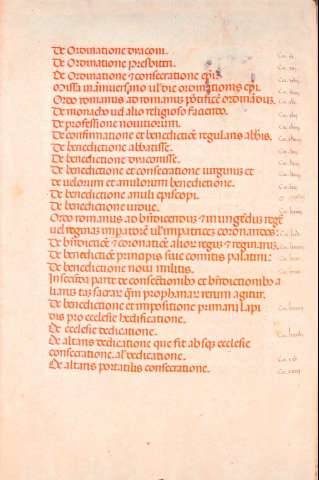 De Ordinatione diaconi.
De Ordinatione presbiteri.
De Ordinatione & consecratione epi.
Missa in anniversario vl' die ordinationis epi.
Ordo romanus ad romanum pontificē ordinādum.
De monacho vel alio religioso faciendo.
De professione novitiorum.
De confirmatione et benedictiōe regularis abbis.
De benedictione abbatisse.
De benedictione diaconisse.
De benedictione et consecratione virginis et
de velorum et anulorum benedictione.
De benedictione anuli episcopi.
De benedictione vidue.
Ordo romanus ad bñdicendus & inungēdus regē
vel reginas imperatorē vl' impatrices coronandos:
De bñdictiōe & coronatiōe alior regus & reginarus.
De benedictiōe principis siue comitis palatini:
De benedictione noui militis.
In secūda parte de consecrtionibo et bñdictionibo a
liarus tas sacrar qm prophanar rerum agitur.
De benedictione et impositione primarii lapi
dis pro ecclesie hedificatione.
De ecclesie dedicatione.
De altaris dedicatione que fit absqs ecclesie
consecratione. al' dedicatione.
De altaris portatilis consecratione.